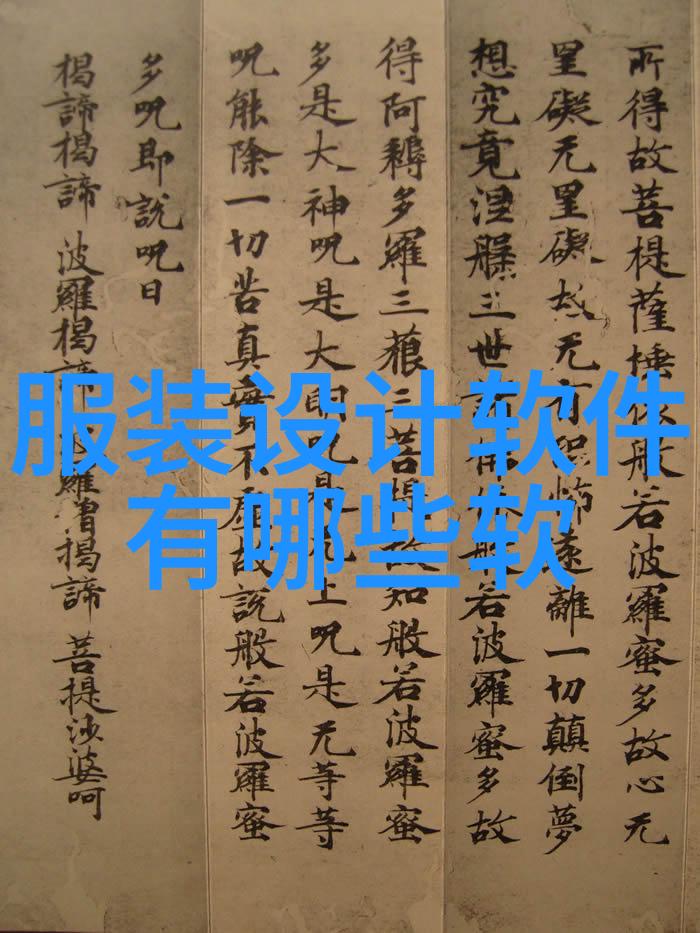 服装设计软件
有哪些软
所得故菩提薩埵依般若波羅蜜多故心无
罣礙无罣礙故无有恐怖遠離一切顛倒夢
想究竟涅槃三世諸佛依般若波羅蜜多故
得阿耨多羅三藐三菩提故知般若波羅蜜
多是大神呪是大明呪是无上呪是无等等
呪能除一切苦真實不虛故說般若波羅蜜
多呪即說呪曰
揭諦揭諦 波羅揭諦 波羅僧揭諦 菩提沙婆呵